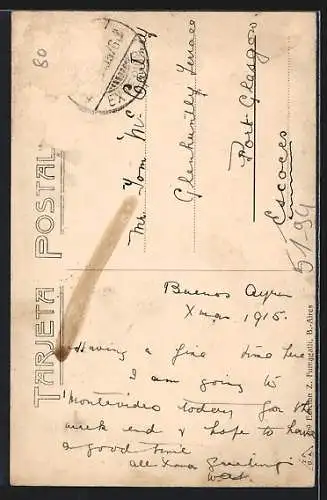 TARJETA POSTAL
80
Mr. Tom Mc
Glenhuntly Terrace
Port-Glasgow
Escoces
5194
Buenos Ayres
Xmas 1915.
Having a fine time here
I am going to
Montevideo today for the
week end & hope to have
a good time
All Xmas Greetings
Edicion Z. Fumagalli, B.-Aires